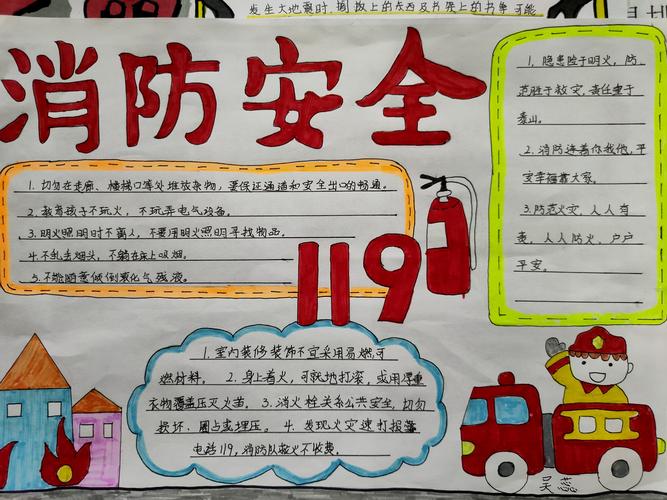 发生大地震时,
书架上的书等可能
消防安全
1.切勿在走廊、楼梯口等处堆放杂物,要保证通道和安全出口的畅通。
2.教育孩子不玩火,不玩弄电气设备。
3.明火照明时不离人,不要用明火照明寻找物品。
4.不乱丢烟头,不躺在床上吸烟。
5.不能随意倾倒液化气残液。
119
1.隐患险于明火,防
范胜于救灾,责任重于
泰山。
2.消防连着你我他,平
安幸福靠大家。
3.防范火灾,人人有
责,人人防火,户户
平安。
1.室内装修装饰不宜采用易燃可
燃材料。2.身上着火,可就地打滚,或用厚重
衣物覆盖压灭火苗。3.消火栓关系公共安全,切勿
损坏、圈占或埋压。4.发现火灾速打报警
电话119,消防队救火不收费。
吴蕊